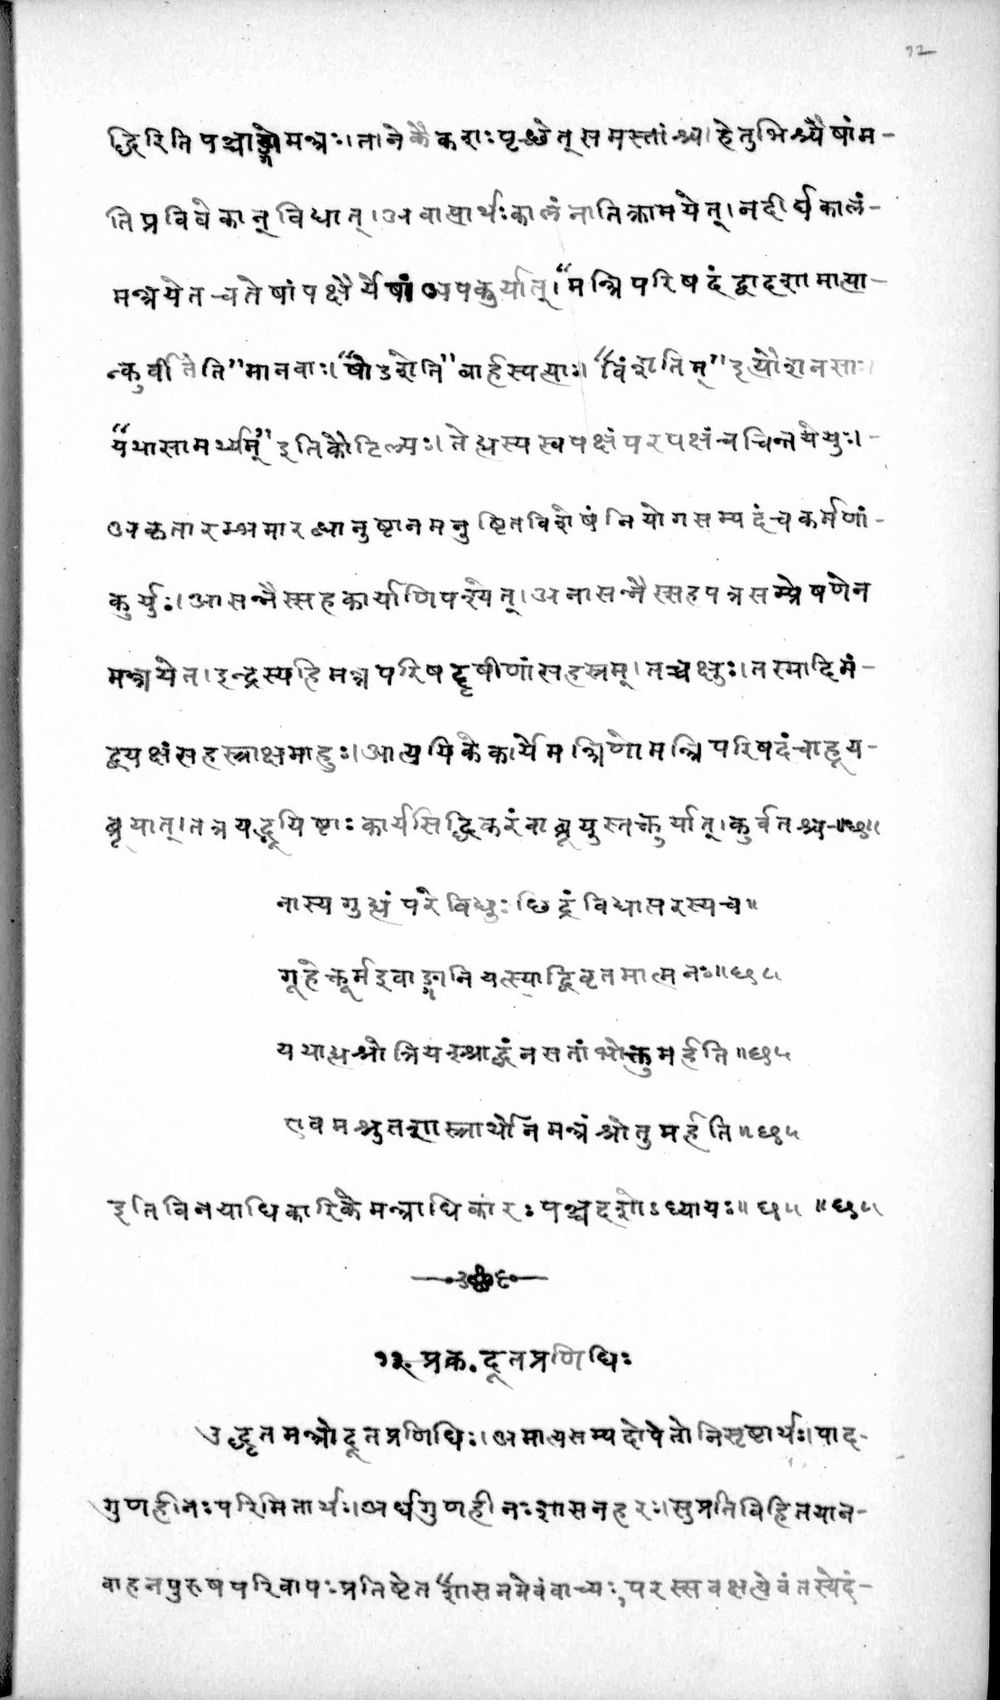 १२
द्धिरितिपञ्चाङ्गोमन्त्रः।तानेकैकशःपृच्छेत्समस्तांश्च।हेतुभिश्चैषांम-
तिप्रविवेकान्विद्यात्।अवाप्तार्थःकालंनातिक्रामयेत्।नदीर्घकालं-
मन्त्रयेतचतेषांपक्ष्यैर्येषां अपकुर्यात्।“मन्त्रिपरिषदंद्वादशामात्या-
न्कुर्वीतेति”मानवाः।“षोडशेति”बार्हस्पत्याः।“विंशतिम्”इत्यौशनसाः।
“यथासामर्थ्यम्”इतिकौटिल्यः।तेह्यस्यस्वपक्षंपरपक्षंचचिन्तयेयुः।-
अकृतारम्भमारब्धानुष्टानमनुष्टितविशेषंनियोगसम्पदंचकर्मणां-
कुर्युः।आसन्नैस्सहकार्याणिपश्येत्।अनासन्नैस्सहपत्रसम्प्रेषणेन
मन्त्रयेत।इन्द्रस्यहिमन्त्रपरिषदृषीणांसहस्रम्।तच्चक्षुः।तस्मादिमं-
द्व्यक्षंसहस्राक्षमाहुः।आत्ययिकेकार्येमन्त्रिणोमन्त्रिपरिषदंचाहूय-
ब्रूयात्।तत्रयद्भूयिष्टाःकार्यसिद्धिकरंवाब्रूयुस्तत्कुर्यात्।कुर्वतश्च-॥६१॥
नास्य गुह्यं परे विद्युः छिद्रं विद्यात्परस्यच॥
गूहेत्कूर्मइवाङ्गानियत्स्याद्विवृतमात्मनः॥६१८।
यथाह्यश्रोत्रियस्श्राद्धंनसतांभोक्तुमर्हति॥६१५
एवमश्रुतशास्त्रार्थोनमन्त्रंश्रोतुमर्हति॥६१५
इतिविनयाधिकारिकेमन्त्राधिकारःपञ्चदशोऽध्यायः॥ ६१५ ॥६१८।
१२ प्रक. दूतप्रणिधिः
उद्धृतमन्त्रोदूतप्रणिधिः।अमात्यसम्पदोपेतोनिसृष्टार्थः।पाद-
गुणहीनःपरिमितार्थः।अर्धगुणहीनःशासनहरः।सुप्रतिविहितयान-
वाहनपुरुषपरिवापःप्रतिष्टेत“शासनमेवंवाच्यः,परस्सवक्षत्येवंतस्येदं-